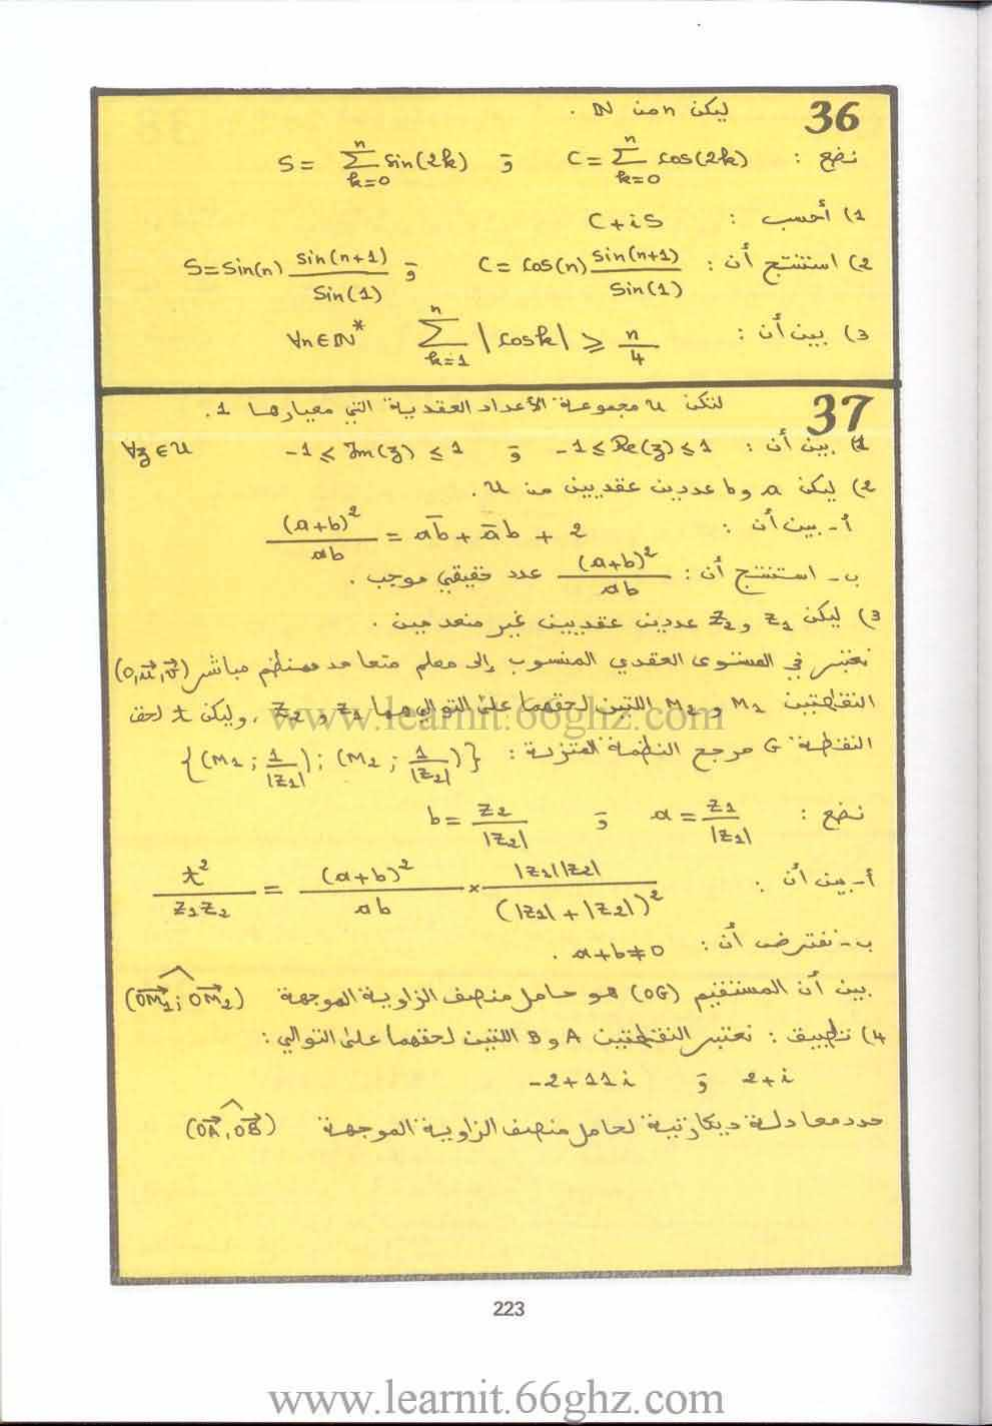 36 ليكن n من ℕ .
نضع : C = \sum_{k=0}^{n} cos(2k) و S = \sum_{k=0}^{n} sin(2k)
1) أحسب : C+iS
2) استنتج أن : C = cos(n) \frac{sin(n+1)}{sin(1)} و S = sin(n) \frac{sin(n+1)}{sin(1)}
3) بين أن : \sum_{k=1}^{n} |cos k| ≥ \frac{n}{4} ∀n∈ℕ*
37 لتكن U مجموعة الأعداد العقدية التي معيارها 1 .
1) بين أن : -1 ≤ Re(z) ≤ 1 و -1 ≤ Im(z) ≤ 1 ∀z ∈ U
2) ليكن a و b عددين عقديين من U .
أ- بين أن : \frac{(a+b)^2}{ab} = a\bar{b} + \bar{a}b + 2
ب- استنتج أن : \frac{(a+b)^2}{ab} عدد حقيقي موجب .
3) ليكن z_1 و z_2 عددين عقديين غير منعدمين .
نعتبر في المستوى العقدي المنسوب إلى معلم متعامد ممنظم مباشر (O,\vec{u},\vec{v})
النقطتين M_1 و M_2 اللتين لحقهما على التوالي هما z_1 و z_2 ، وليكن t لحق
النقطة G مرجع النظمة المتزنة : {(M_1 ; \frac{1}{|z_1|}) ; (M_2 ; \frac{1}{|z_2|})}
نضع : a = \frac{z_1}{|z_1|} و b = \frac{z_2}{|z_2|}
أ- بين أن : \frac{t^2}{z_1 z_2} = \frac{(a+b)^2}{ab} × \frac{|z_1||z_2|}{(|z_1|+|z_2|)^2}
ب- نفترض أن : a+b≠0 .
بين أن المستقيم (OG) هو حامل منصف الزاوية الموجهة (\vec{OM_1} ; \vec{OM_2})
4) تطبيق : نعتبر النقطتين A و B اللتين لحقهما على التوالي :
2+i و -2+11i
حدد معادلة ديكارتية لحامل منصف الزاوية الموجهة (\vec{OA} , \vec{OB})
223
www.learnit.66ghz.com
www.learnit.66ghz.com